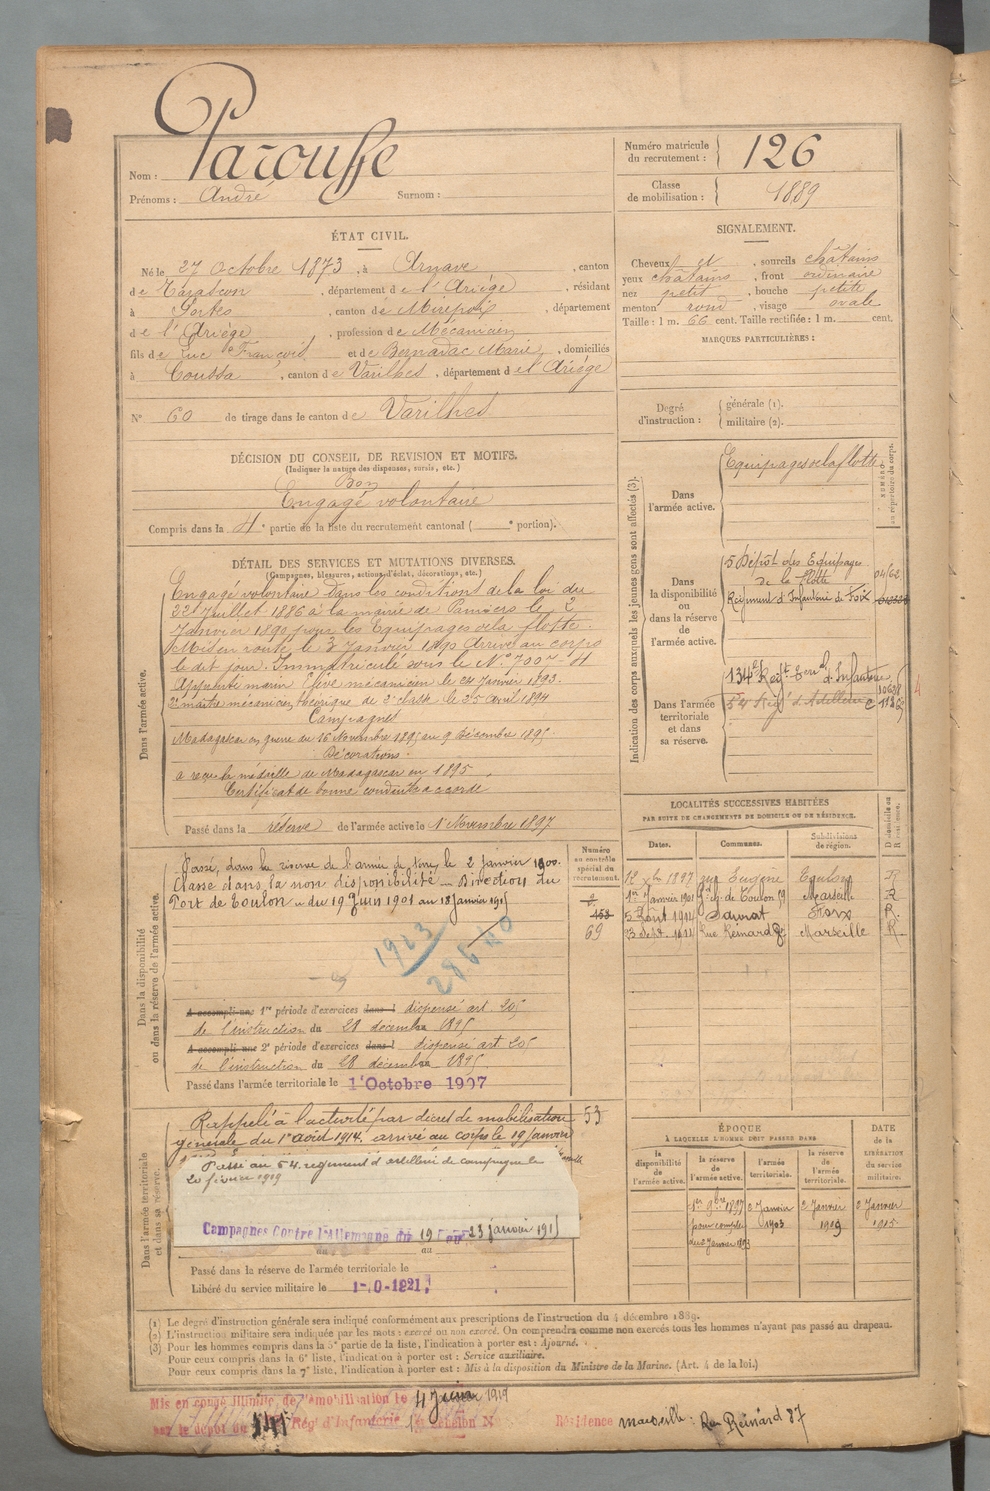 Parouffe
Nom :
Prénoms : André Surnom :
Numéro matricule du recrutement : 126
Classe de mobilisation : 1889
ÉTAT CIVIL.
Né le 27 Octobre 1873, à Arnave, canton
de Tarascon, département de l'Ariège, résidant
à , canton de Mirepoix, département
de l'Ariège, profession de Mécanicien
fils de Luc François et de Bernadac Marie, domiciliés
à Coussa, canton de Varilhes, département de l'Ariège
N° 60 de tirage dans le canton de Varilhes
SIGNALEMENT.
Cheveux et, sourcils châtains
yeux châtains, front ordinaire
nez petit, bouche petite
menton rond, visage ovale
Taille : 1 m. 66 cent. Taille rectifiée : 1 m. cent.
MARQUES PARTICULIÈRES :
Degré d'instruction : générale (1).
militaire (2).
DÉCISION DU CONSEIL DE REVISION ET MOTIFS.
(Indiquer la nature des dispenses, sursis, etc.)
Bon
Engagé volontaire
Compris dans la 4e partie de la liste du recrutement cantonal ( e portion).
DÉTAIL DES SERVICES ET MUTATIONS DIVERSES.
(Campagnes, blessures, actions d'éclat, décorations, etc.)
Dans l'armée active.
Engagé volontaire dans les conditions de la loi du
22 Juillet 1886 à la mairie de Pamiers le 2
Janvier 1890 pour les Equipages de la flotte.
Mis en route le 3 Janvier 1890 Arrivé au corps
le dit jour. Immatriculé sous le N°
Apprenti marin Elève mécanicien le 24 Janvier 1893.
2e maître mécanicien théorique de 2e classe le 25 avril 1894
Campagnes
Madagascar en guerre du 16 Novembre 1895 au 9 Décembre 1895
Décorations :
a reçu la médaille de Madagascar en 1895
Certificat de bonne conduite accordé
Passé dans la réserve de l'armée active le 1 Novembre 1897
Indication des corps auxquels les jeunes gens sont affectés (3).
NUMÉRO au répertoire du corps.
Dans l'armée active.
Equipages de la flotte
Dans la disponibilité ou dans la réserve de l'armée active.
5 Dépôt des Equipages
de la flotte 04/62
Régiment d'Infanterie de Foix
Dans l'armée territoriale et dans sa réserve.
134e Regt Terral d'Infanterie
54 Regt d'Artillerie
LOCALITÉS SUCCESSIVES HABITÉES
PAR SUITE DE CHANGEMENTS DE DOMICILE OU DE RÉSIDENCE.
Dates. Communes. Subdivisions de région. Domicile ou résidence.
1897 rue Eugène Toulon R
1er Janvier 1901 de Toulon 19 Marseille R
5 Août 1914 Saurat Foix R.
Rue Reinard 87 Marseille R.
Dans la disponibilité ou dans la réserve de l'armée active.
Numéro au contrôle spécial du recrutement.
Passé dans la réserve de l'armée de mer le 2 janvier 1900.
Classé dans la non disponibilité Direction du
Port de Toulon du 19 Juin 1901 au 18 Janvier 1915
453
69
1923
A accompli une 1re période d'exercices dans l dispensé art. 205
de l'instruction du 28 décembre 1895
A accompli une 2e période d'exercices dans l dispensé art 205
de l'instruction du 28 décembre 1895
Passé dans l'armée territoriale le 1 Octobre 1907
Dans l'armée territoriale et dans sa réserve.
Rappelé à l'activité par décret de mobilisation 53
générale du 1er Août 1914, arrivé au corps le 19 janvier
Passé au 54 régiment d'artillerie de campagne le
20 février 1919
Campagnes Contre l'Allemagne du 19 au 23 janvier 1915
du au
Passé dans la réserve de l'armée territoriale le
Libéré du service militaire le
ÉPOQUE
À LAQUELLE L'HOMME DOIT PASSER DANS
la disponibilité de l'armée active. la réserve de l'armée active. l'armée territoriale. la réserve de l'armée territoriale.
DATE de la LIBÉRATION du service militaire.
1er 9bre 1897 pour compter du 2 Janvier 1893
2 Janvier 1903
2 Janvier 1909
2 Janvier 1915
(1) Le degré d'instruction générale sera indiqué conformément aux prescriptions de l'instruction du 4 décembre 1889.
(2) L'instruction militaire sera indiquée par les mots : exercé ou non exercé. On comprendra comme non exercés tous les hommes n'ayant pas passé au drapeau.
(3) Pour les hommes compris dans la 5e partie de la liste, l'indication à porter est : Ajourné.
Pour ceux compris dans la 6e liste, l'indication à porter est : Service auxiliaire.
Pour ceux compris dans la 7e liste, l'indication à porter est : Mis à la disposition du Ministre de la Marine. (Art. 4 de la loi.)
Mis en congé illimité de démobilisation le 4 1919
par le dépôt du Rég' d'Infanterie Résidence Marseille : Rue Reinard 87